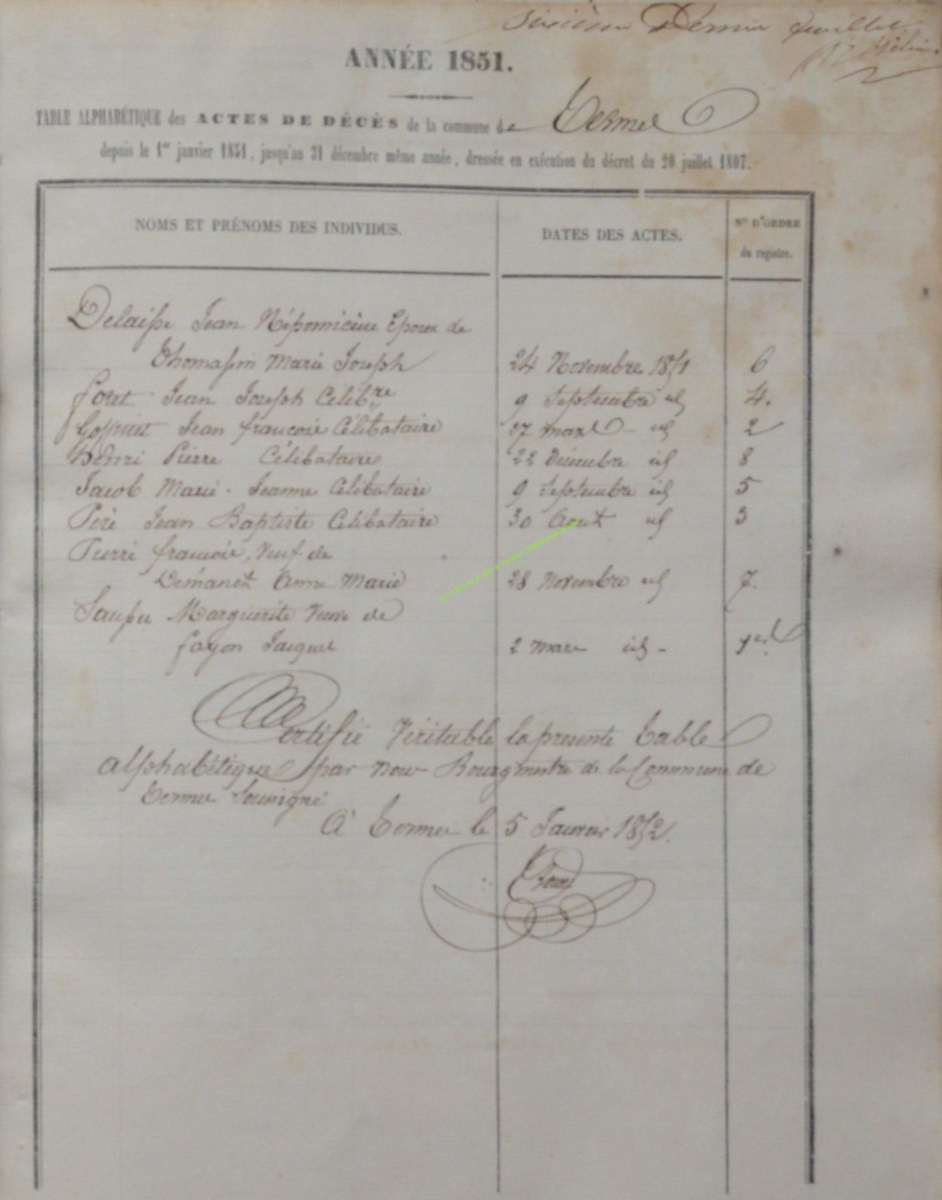 Sixième Dernier feuillet
ANNÉE 1851.
TABLE ALPHABÉTIQUE des ACTES DE DÉCÈS de la commune de Termes
depuis le 1er janvier 1851, jusqu'au 31 décembre même année, dressée en exécution du décret du 20 juillet 1807.
NOMS ET PRÉNOMS DES INDIVIDUS. DATES DES ACTES. Nos D'ORDRE
du registre.
Delaisse Jean Népomicène Epoux de
Thomassin Marie Joseph 24 Novembre 1851 6
foret Jean Joseph Célibre 9 Septembre id 4.
Jean françois Célibataire 17 mars id 2
Henri Pierre Célibataire 22 Décembre id 8
Jacob Marie-Jeanne Célibataire 9 Septembre id 5
Jean Baptiste Célibataire 30 Aout id 3
françois, Veuf de
Demanet Anne Marie 28 Novembre id 7.
Marguerite Veuve de
fayon Jacques 2 mars id -
Certifié Véritable la présente Table
alphabétique par nous Bourgmestre de la Commune de
Termes Soussigné
A Termes le 5 Janvier 1852.